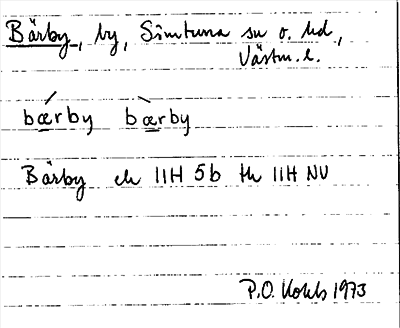 Bärby, by, Simtuna sn o. hd,
Västm. l.
bærby bærby
Bärby ek 11H 5b tk 11H NV
P.O. 1973